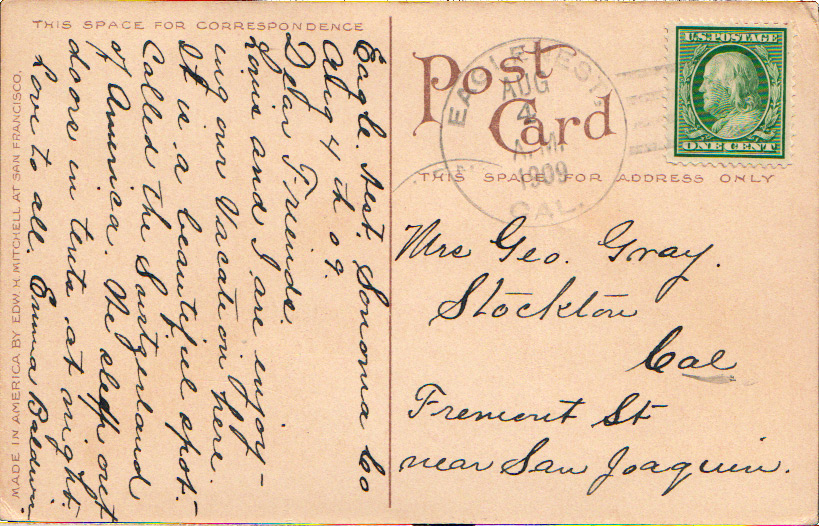 THIS SPACE FOR CORRESPONDENCE
Eagle. Nest. Sonoma Co
Aug 4th 09.
Dear Friends.
Louis and I are enjoy-
ing our Vacation here.
It is a beautiful spot.
Called the Switzerland
of America. We sleep out
doors in tents at night.
Love to all. Emma Baldwin.
MADE IN AMERICA BY EDW. H. MITCHELL AT SAN FRANCISCO.
Post
Card
THIS SPACE FOR ADDRESS ONLY
EAGLE NEST.
AUG
4
A.M.
1909
CAL.
U.S. POSTAGE
ONE CENT
Mrs Geo. Gray.
Stockton
Cal
Fremont St
near San Joaquin.